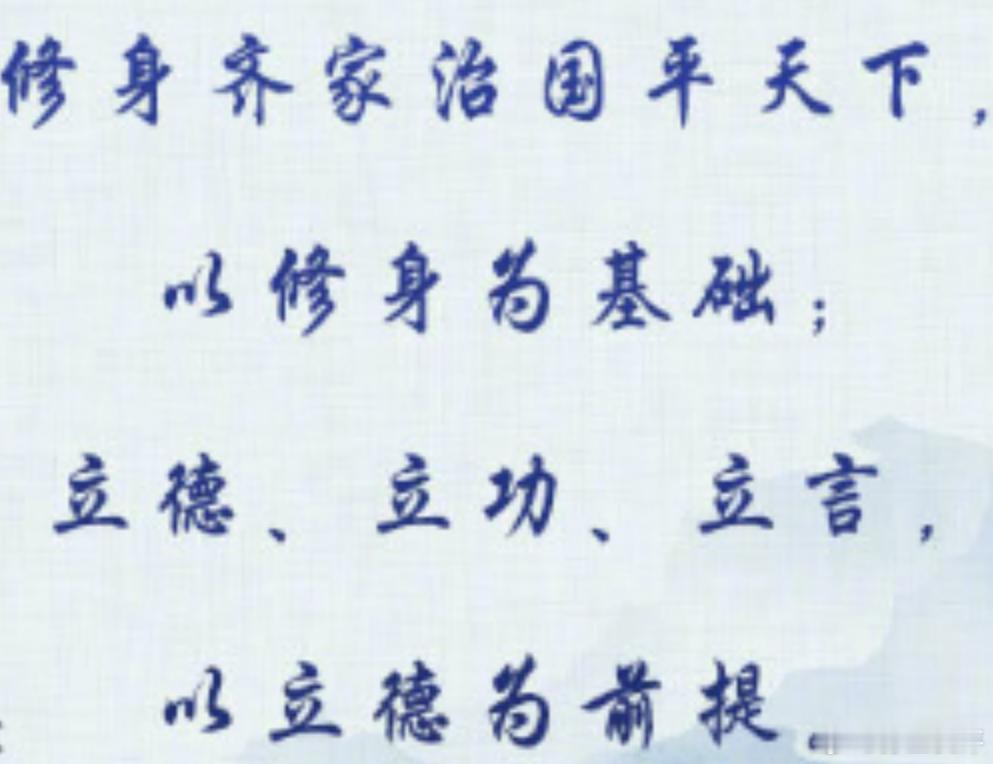 修身齐家治国平天下，
以修身为基础；
立德、立功、立言，
以立德为前提